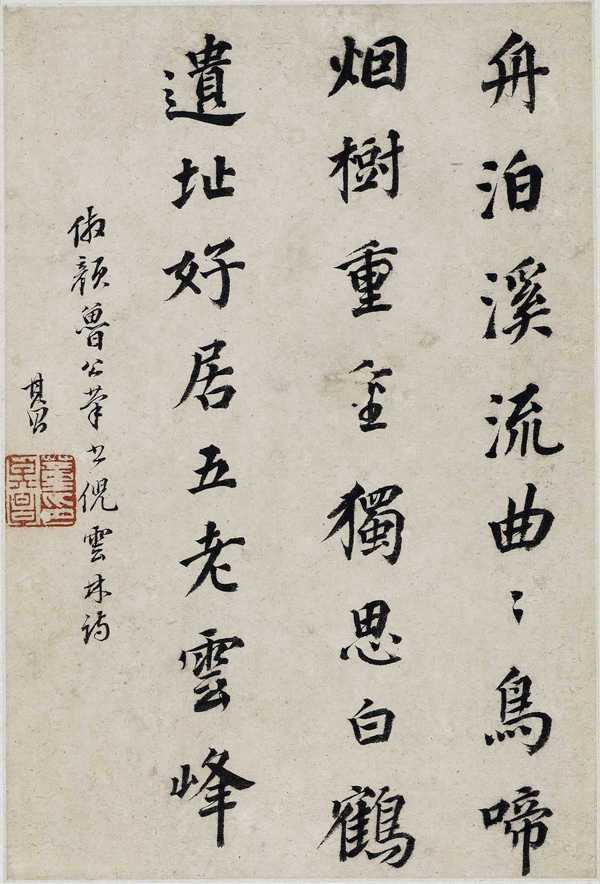 舟泊溪流曲〻鳥啼
烟樹重重獨思白鶴
遺址好居五老雲峰
倣顏魯公筆書倪雲林詩
其昌
董印其昌